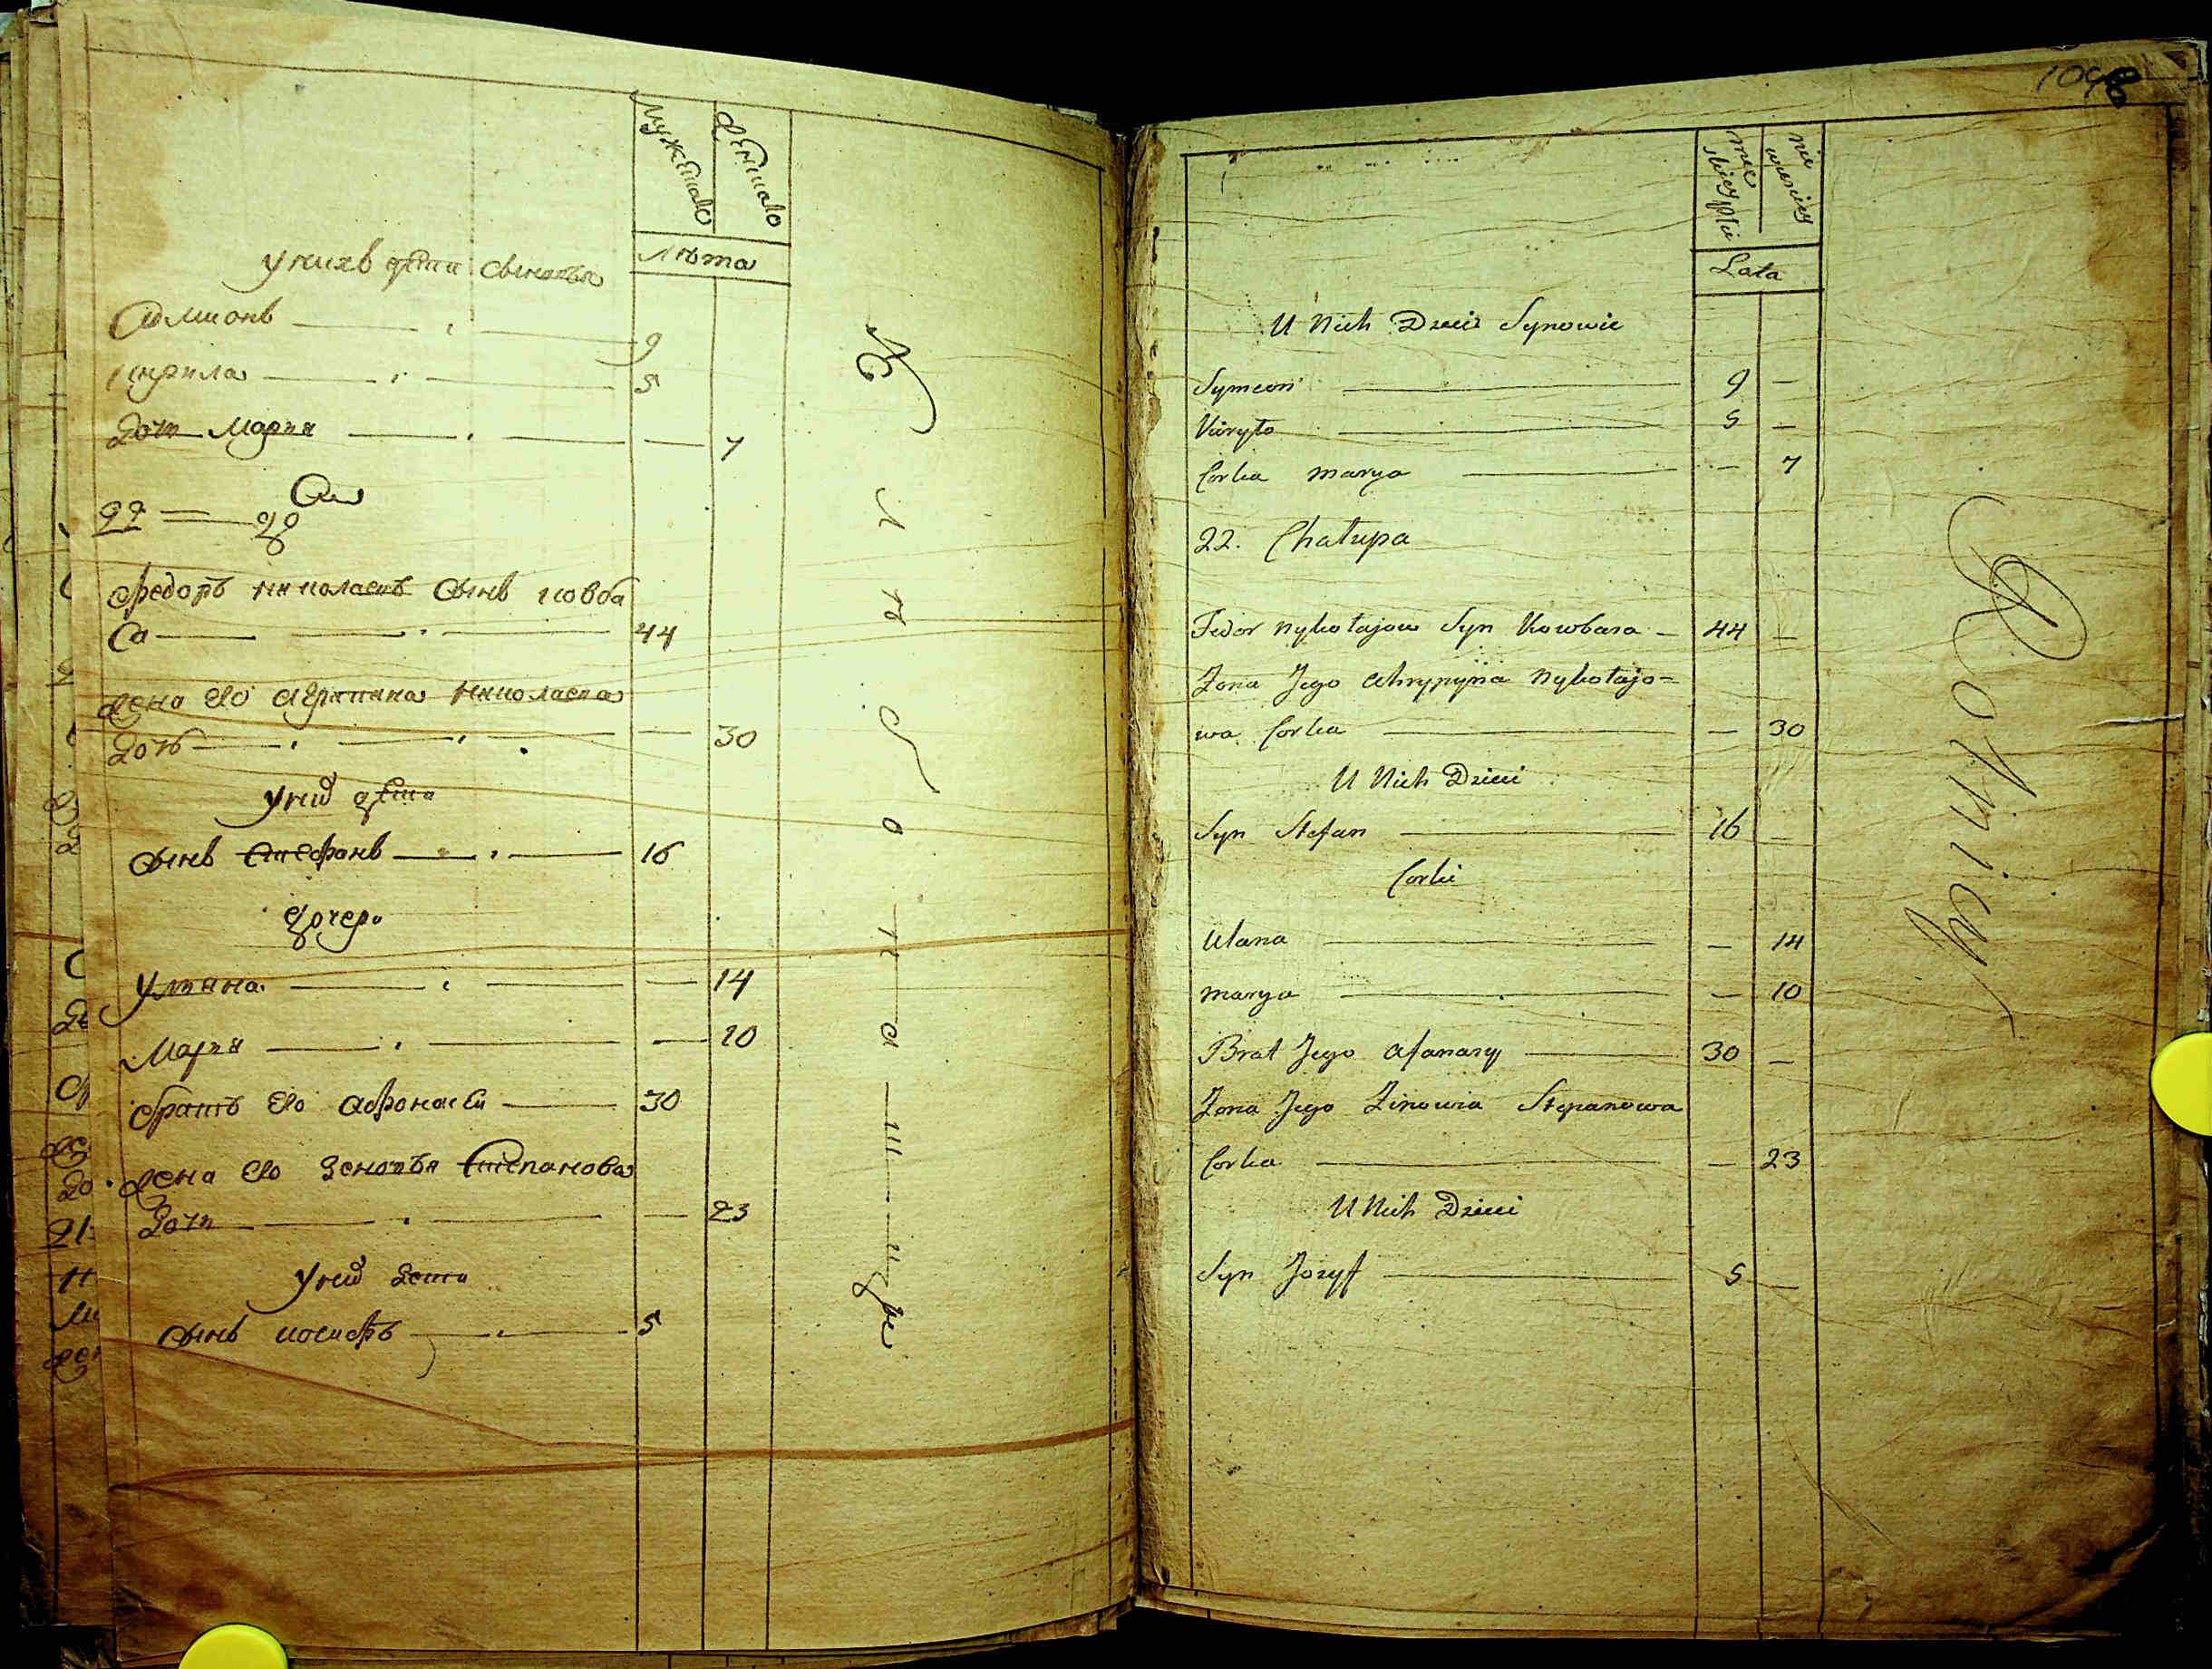 Мужеска
Женска
Лѣта
у нихъ дети сыновья
Симионъ 9
Кирила 5
Дочь Мария — 7
22
Федоръ Николаевъ сынъ Ковба
са 44
жена его Агрипина Николаева
дочь — 30
у них дети
сынъ Стефанъ 16
дочери
Ульяна — 14
Мария — 10
братъ его Афонасей 30
жена его Зеновья Степанова
дочь — 23
у них дети
сынъ Иосифъ 5
1098
męskiey płci
niewieściey
Lata
U Nich Dzieci Synowie
Symeon 9 —
Kiryło 5 —
Corka Marya — 7
22. Chałupa
Fedor Nykołajow Syn Kowbasa — 44 —
Zona Jego Ahrypyna Nykołajo=
wa Corka — 30
U Nich Dzieci
Syn Stefan 16 —
Corki
Ulana — 14
Marya — 10
Brat Jego Afanazy 30 —
Zona Jego Zinowia Stepanowa
Corka — 23
U Nich Dzieci
Syn Jozyf 5 —
Rolnicy